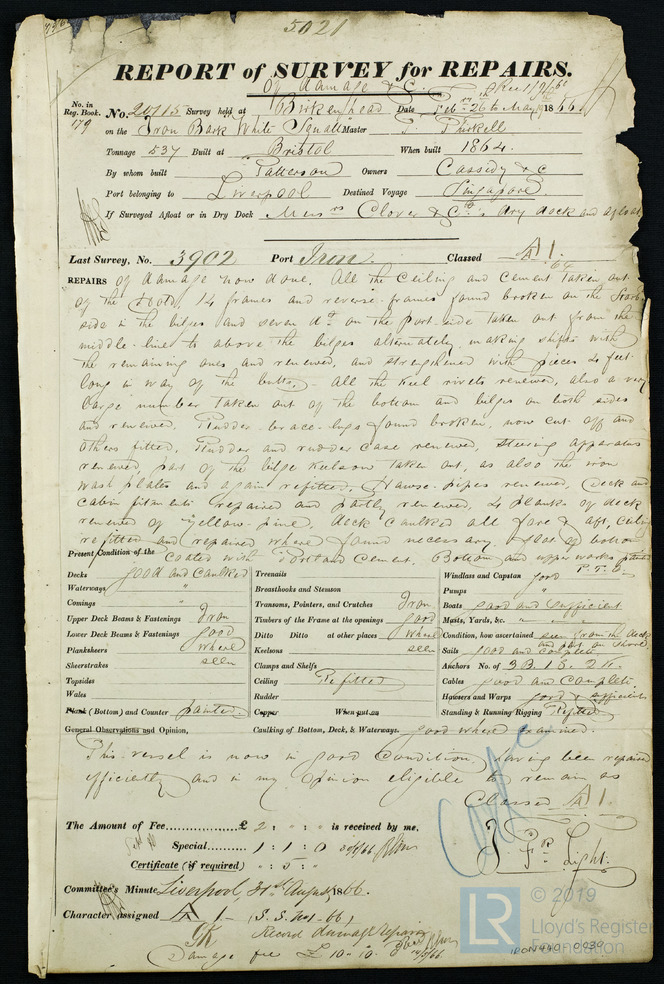 5021
REPORT of SURVEY for REPAIRS.
of damage & c.
No. in Reg. Book. 179
No. 20115 Survey held at Birkenhead Date Feb 26 to May 1866
on the Iron Bark White Squall Master T. Purkell
Tonnage 537 Built at Bristol When built 1864.
By whom built Patterson Owners Cassidy & c
Port belonging to Liverpool Destined Voyage Singapore
If Surveyed Afloat or in Dry Dock Messrs Clover & Co's dry dock and afloat
Last Survey, No. 3902 Port Iron Classed A 1.
REPAIRS of damage now done. All the Ceiling and Cement taken out
of the 14 frames and reverse frames found broken on the Starb
side in the bilges and seven do on the port side taken out from the
middle-line to above the bilges alternately making shifts with
the remaining ones and renewed, and strengthened with pieces 4 feet
long in way of the butts, - All the Keel rivets renewed, also a very
large number taken out of the bottom and bilges on both sides
and renewed. Rudder-brace-lugs found broken, now cut off and
others fitted, Rudder and rudder case renewed, Steering apparatus
renewed, part of the bilge keelson taken out, as also the iron
wash plates and again refitted, Hawse-pipes renewed, Deck and
cabin fitments repaired and partly renewed, 4 planks of deck
renewed of yellow-pine, deck caulked all fore & aft, Ceiling
refitted and repaired where found necessary, flat of bottom
coated with Portland Cement, Bottom and upper works painted
P. T. O.
Present Condition of the
Decks good and caulked
Waterways "
Comings
Upper Deck Beams & Fastenings Iron
Lower Deck Beams & Fastenings good
Planksheers where
Sheerstrakes seen
Topsides
Wales
Plank (Bottom) and Counter painted
Treenails
Breasthooks and Stemson
Transoms, Pointers, and Crutches Iron
Timbers of the Frame at the openings good
Ditto Ditto at other places where
Keelsons seen
Clamps and Shelfs
Ceiling Refitted
Rudder
Copper When put on
Windlass and Capstan good
Pumps "
Boats good and Sufficient
Masts, Yards, &c. "
Condition, how ascertained seen from the deck and part on shore
Sails good and complete
Anchors No. of 3 B. 1 S. 2 K.
Cables good and Complete.
Hawsers and Warps good & sufficient
Standing & Running Rigging Refitted
General Observations and Opinion,
Caulking of Bottom, Deck, & Waterways. good where examined.
This vessel is now in good Condition, having been repaired
efficiently and in my Opinion eligible to remain as
Classed A 1.
The Amount of Fee............... £ 2 : " : " is received by me,
Special............... 1 : 1 : 0
Certificate (if required) " : 5 : "
J. Fr Light.
Committee's Minute Liverpool, 31st August 1866.
Character assigned A 1 - (S. S. No 1 - 66)
Record damage repairing
Damage fee £ 10 - 10.
LR
© 2019
Lloyd's Register
Foundation
IRON440-0030